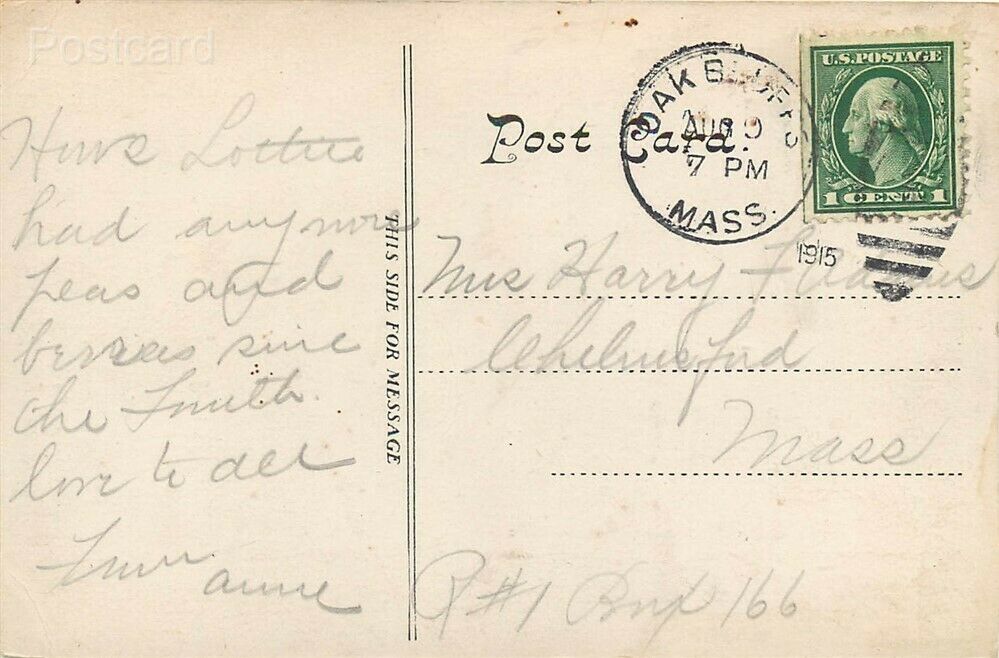 Postcard
Hows Lottie
had any more
peas and
berries since
the Fourth.
love to all
From
Anne
THIS SIDE FOR MESSAGE
Post Card.
OAK BLUFFS
AUG 9
7 PM
MASS.
1915
U.S. POSTAGE
1 CENT 1
Mrs Harry
Chelmsford
Mass
R #1 Box 166